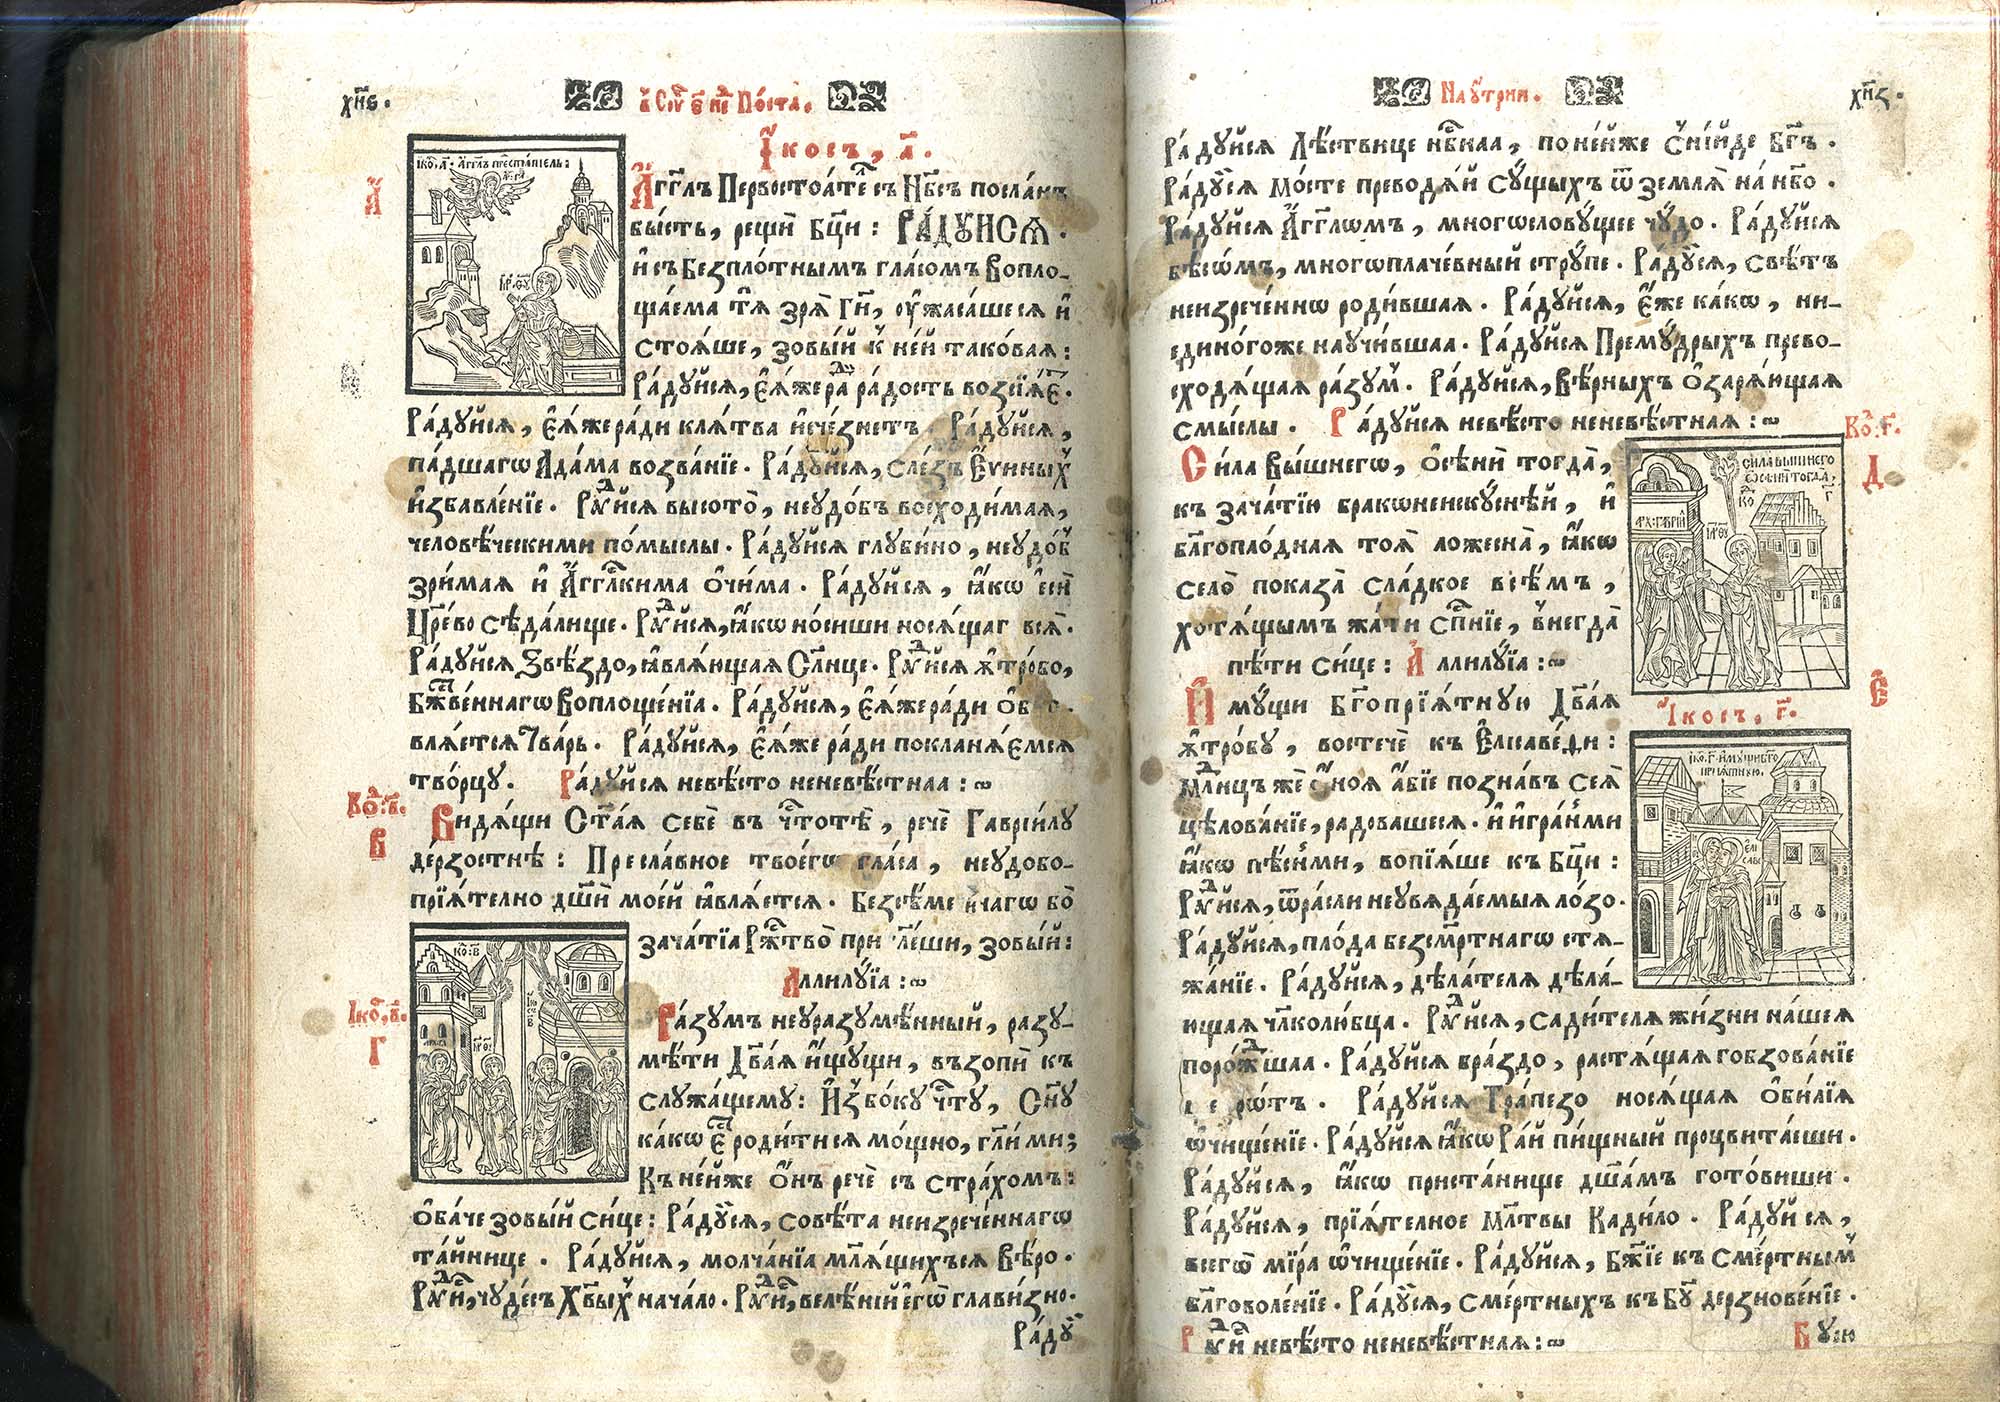 хн҃є.
в Сꙋ҃ е҃ не҃ По́ста.
І҆́косъ, а҃.
І҆ко҃. а҃. А҆гг҃лъ преⷣста́тель:
А҃
А҆́гг҃лъ Первостоѧ́теⷧ҇ съ Нб҃съ посла́нъ
бы́сть, рещѝ Бц҃и: РА́ДУЙСЯ.
и҆ съ Безпло́тнымъ гла́сомъ Вопло-
ща́ема тѧ̀ зрѧ̀ Гд҇и, оу҆жаса́шесѧ и҆
стоѧ́ше, зовы́й к̾ не́й такова́ѧ:
Ра́дуйсѧ, Е҆ѧ́же раⷣ ра́дость возсїѧ́еⷮ.
Ра́дуйсѧ, Е҆ѧ́же ра́ди клѧ́тва и҆сче́знетъ. Ра́дуйсѧ,
па́дшагѡ Ада́ма воззва́нїе. Ра́дуйсѧ, сле́зъ Е҆́ѵиныхъ
и҆збавле́нїе. Раⷣуйсѧ высото̀, неудо́бь восходи́маѧ,
человѣ́ческими по́мыслы. Ра́дуйсѧ глубино̀, неудо́б
зри́маѧ и҆ А҆́гг҃лскима ѻ҆чи́ма. Ра́дуйсѧ, ꙗ҆́кѡ є҆сѝ
Цр҃ево сѣда́лище. Раⷣуйсѧ, ꙗ҆́кѡ но́сиши носѧ́щаг всѧ̀.
Ра́дуйсѧ Ѕвѣздо̀, ꙗ҆влѧ́ющаѧ Сл҃нце. Раⷣуйсѧ ѫ҆тро́бо,
Бж҃твеннагѡ воплоще́нїѧ. Ра́дуйсѧ, Е҆ѧ́же ра́ди ѻ҆бно-
влѧ́етсѧ Тва́рь. Ра́дуйсѧ, Е҆ѧ́же ра́ди покланѧ́емсѧ
тво́рцу. Ра́дуйсѧ невѣ́сто неневѣ́стнаѧ:~
Коⷩ҇: в҃.
В
Видѧ́щи Ст҃а́ѧ себѐ въ чⷭ҇тотѣ̀, речѐ Гаврїи́лу
де́рзостнѣ: Пресла́вное твоегѡ̀ гла́са, неудобо-
прїѧ́телно дш҃и мое́й ꙗ҆влѧ́етсѧ. Безсѣ́меннагѡ бо̀
зача́тїа Рⷤ҇тво̀ при глеши, зовы́й:
Аллилꙋ́їа:~
Ко: в
Іко҃, в҃.
Г
Ра́зумъ неуразумѣ́нный, разу-
мѣ́ти Дв҃аѧ и҆́щущи, възопѝ къ
служа́щему: И҆з̾ бо́ку чⷭ҇ту, Сн҃у
ка́кѡ е҆сть роди́тисѧ мо́щно, гл҃и ми;
Къ не́йже ѻ҆́нъ речѐ съ стра́хомъ:
ѻ҆ба́че зовы́й си́це: Ра́дуйсѧ, совѣ́та неизрече́ннагѡ
та́йнице. Ра́дуйсѧ, молча́нїа млⷧ҇ѧщихъсѧ вѣ́ро.
Раⷣуйсѧ, чуде́съ Хв҃ыхъ нача́ло. Раⷣуйсѧ, велѣ́нїй є҆гѡ̀ глави́зно.
Ра́дуⷤ
На у҆́трни.
хн҃ѕ.
Ра́дуйсѧ Лѣ́ствице нб҃наѧ, по не́йже сни́йде Бг҃ъ.
Ра́дуйсѧ мо́сте преводѧ́й су́щыхъ ѿ землѧ̀ на нб҃о.
Ра́дуйсѧ А҆́гг҃лѡмъ, многѡслову́щее чу́до. Ра́дуйсѧ
бѣсѡ́мъ, многѡплаче́вный стру́пе. Ра́дуйсѧ, свѣ́тъ
неизрече́ннѡ роди́вшаѧ. Ра́дуйсѧ, Е҆́же ка́кѡ, ни-
еди́ногоже научи́вшаа. Ра́дуйсѧ Прему́дрыхъ прево-
сходѧ́щаѧ ра́зум. Ра́дуйсѧ, вѣ́рныхъ ѻ҆зарѧ́ющаѧ
смы́слы. Ра́дуйсѧ невѣ́сто неневѣ́стнаѧ:~
Коⷩ҇: г҃.
Д
Си́ла Вы́шнегѡ, ѻ҆сѣнѝ тогда̀,
къ зача́тїю бракѡнеиску́снѣй, и҆
бл҃гопло́днаѧ тоѧ̀ ложесна̀, ꙗ҆́кѡ
село̀ показа̀ сла́дкое всѣ́мъ,
хотѧ́щымъ жа́ти сп҃нїе, внегда̀
пѣ́ти си́це: Аллилꙋ́їа:~
Сила вышнего
ѡсѣни тогда,
Ко г
Арх: Гаврїи
Е҃
І҆́косъ, г҃.
И҆му́щи Бг҃опрїѧ́тную Дв҃аѧ
ѫ҆тро́бу, востечѐ къ Е҆лисаве́ѳи:
млⷣнцъ же ѻ҆́ноѧ а҆́бїе позна́въ сеѧ̀
цѣлова́нїе, ра́довашесѧ. и҆ и҆гра́нми
ꙗ҆́кѡ пѣ́снми, вопїѧ́ше къ Бц҃и:
Іко҃. г҃. Имущи Бг҃о
прїѧтную.
Ели
саве
Раⷣуйсѧ, ѿрасли неувѧда́емыѧ лозо̀.
Ра́дуйсѧ, плода̀ безсмр҃тнагѡ стѧ-
жа́нїе. Ра́дуйсѧ, дѣ́лателѧ дѣ́ла-
ющаѧ чл҃колю́бца. Раⷣуйсѧ, сади́телѧ жи́зни на́шеѧ
поро́ждшаа. Ра́дуйсѧ бра́здо, растѧ́щаѧ гобзова́нїе
Ра́дуйсѧ Трапе́зо носѧ́щаѧ ѻ҆би́лїѧ
ѡ҆чище́нїе. Ра́дуйсѧ ꙗ҆́кѡ Ра́й пи́щный процвита́еши.
Ра́дуйсѧ, ꙗ҆́кѡ приста́нище дш҃а́мъ гото́виши.
Ра́дуйсѧ, прїѧ́телное мл҃твы Кади́ло. Ра́дуйсѧ,
всегѡ̀ ми́ра ѡ҆чище́нїе. Ра́дуйсѧ, Бж҃їе къ сме́ртным
бл҃говоле́нїе. Ра́дуйсѧ, сме́ртныхъ къ Бг҃у дерзнове́нїе.
Раⷣуйсѧ невѣ́сто неневѣ́стнаѧ:~
Бурю